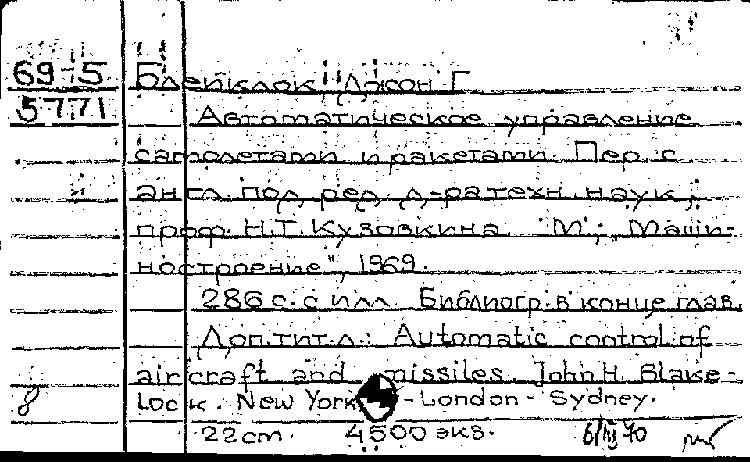 69-5 Блейклок Джон Г.
5771 Автоматическое управление
самолетами и ракетами. Пер. с
англ. под ред. д-ра техн. наук,
проф. Н.Т. Кузовкина. М., "Маши-
ностроение", 1969.
286 с. с илл. Библиогр. в конце глав.
Доп. тит. л.: Automatic control of
aircraft and missiles. John H. Blake-
8 lock. New York - London - Sydney.
22 cm. 4500 экз.